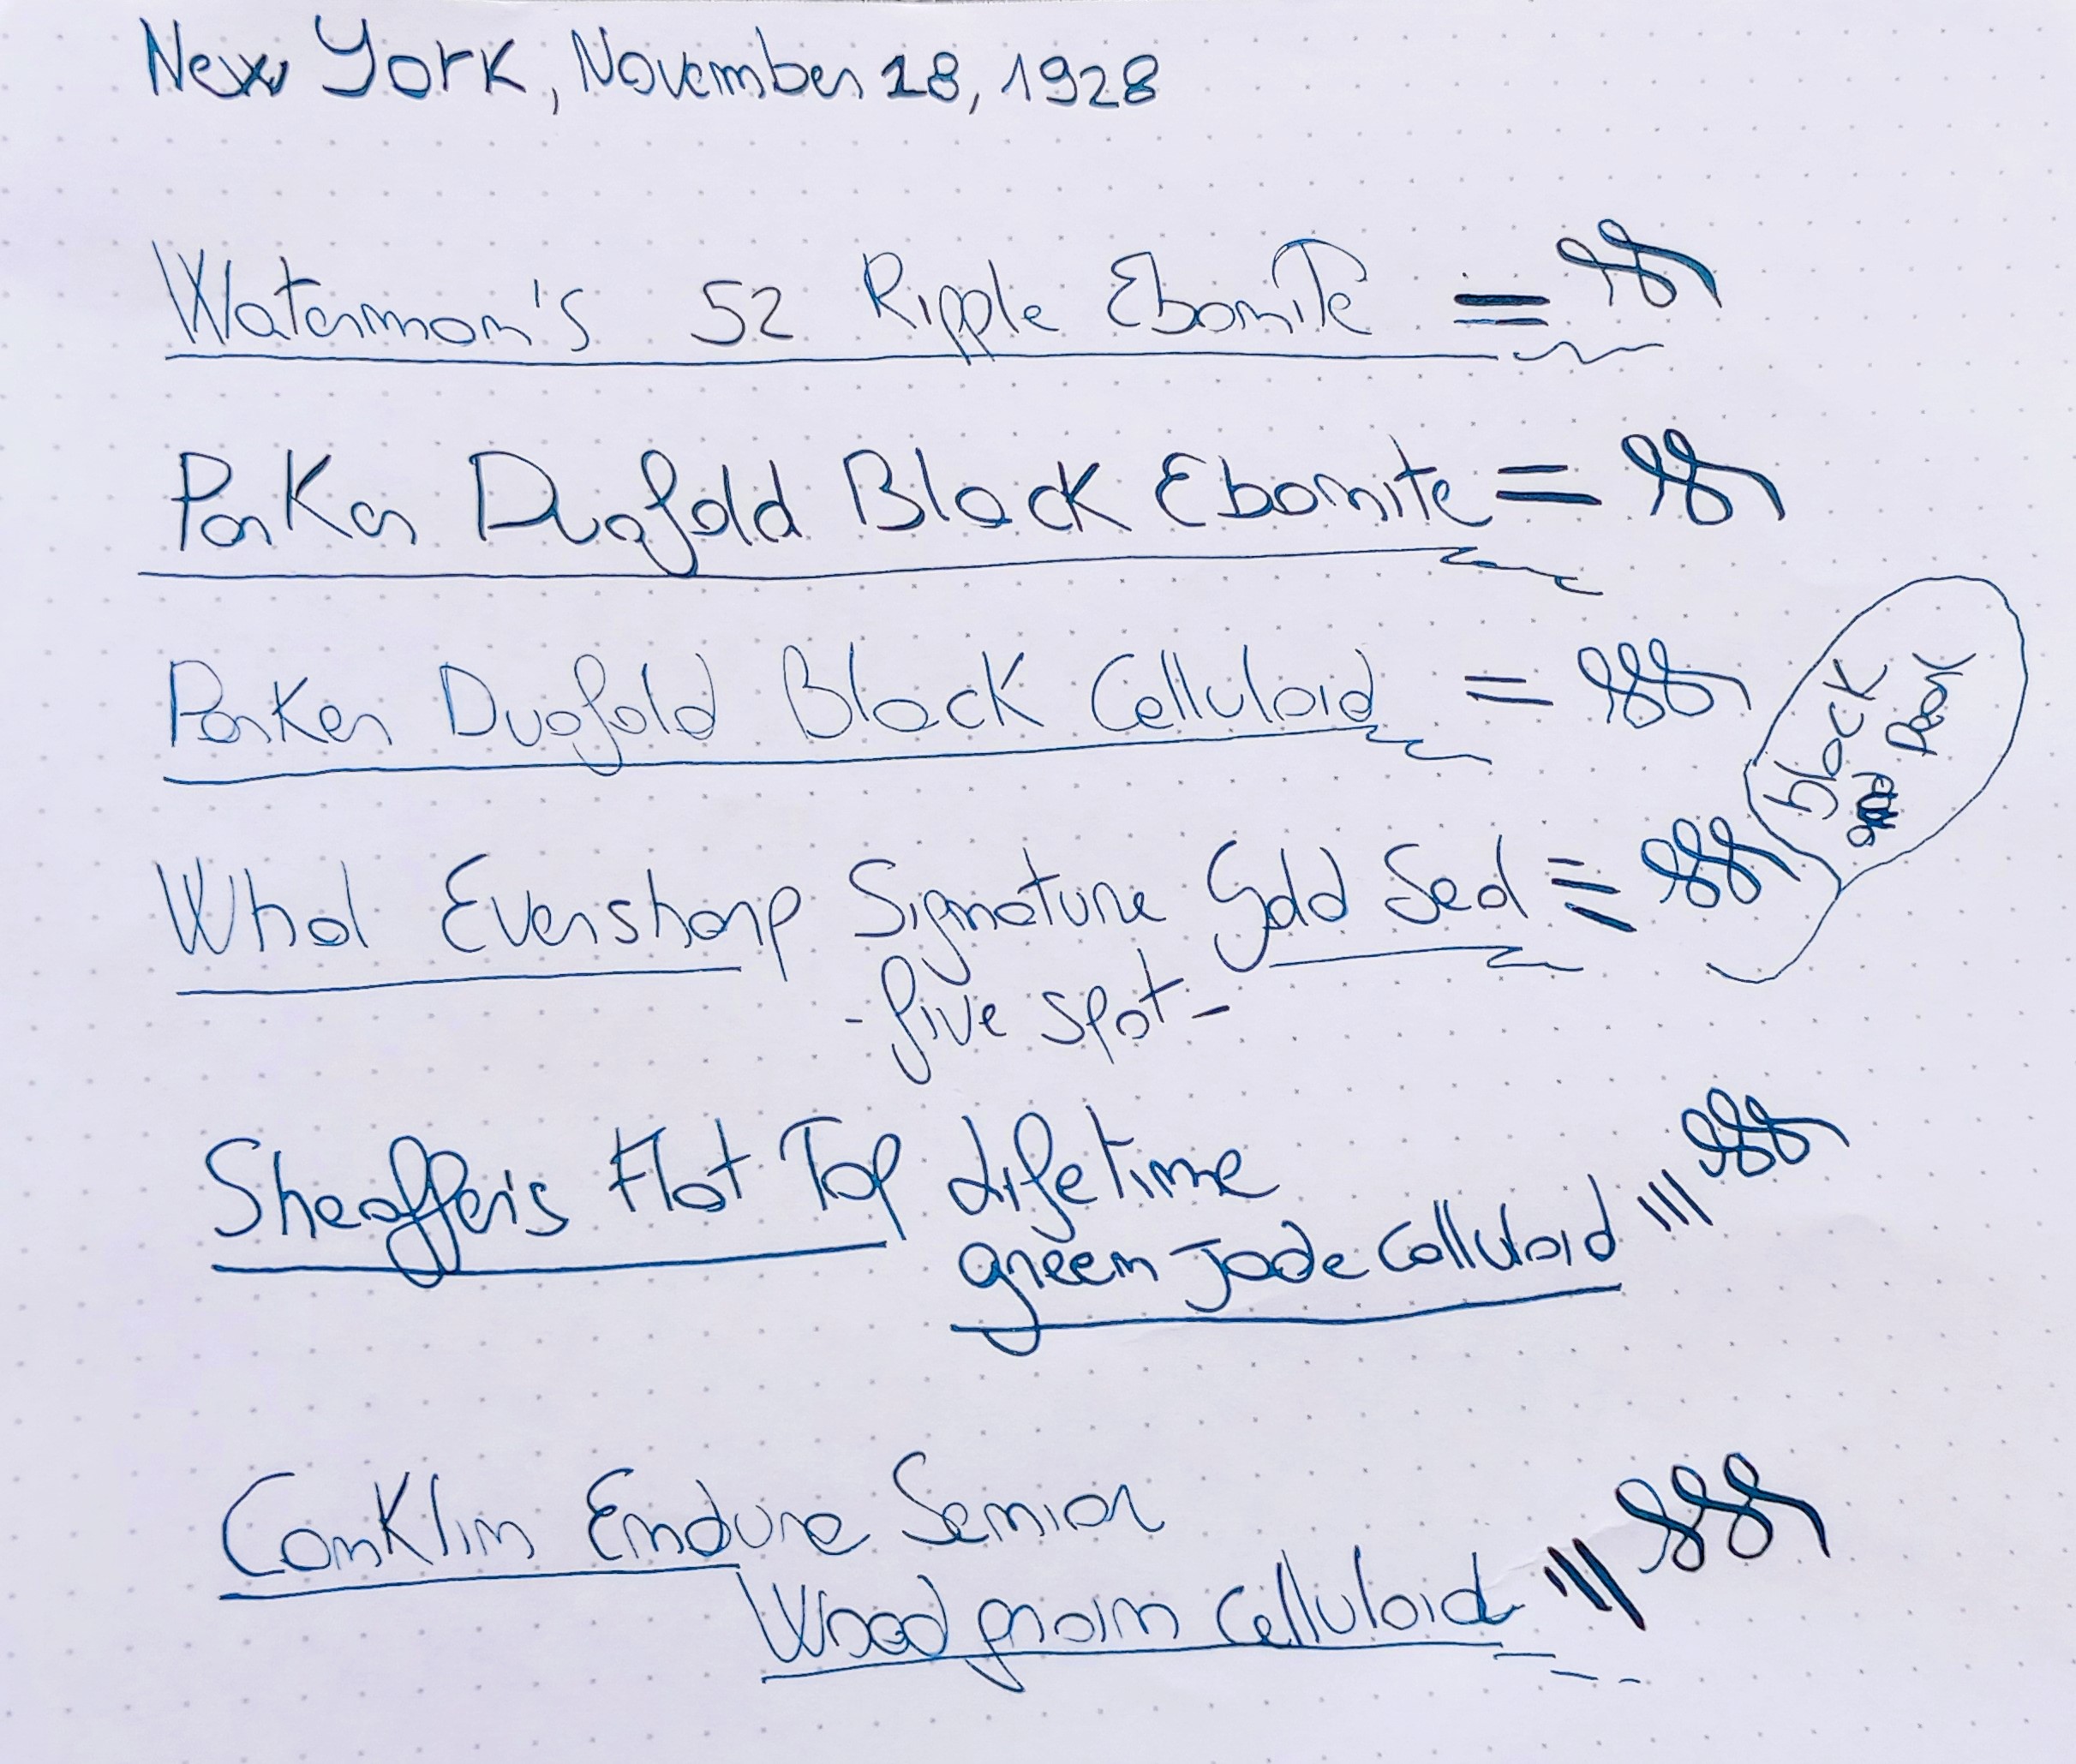 New York, November 18, 1928
Waterman's 52 Ripple Ebonite =
Parker Duofold Black Ebonite =
Parker Duofold Black Celluloid =
black
and Pearl
Whal Eversharp Signature Gold Seal
- five spot -
Sheaffer's Flat Top Lifetime
green Jade Celluloid
Conklin Endura Senior
Wood grain Celluloid